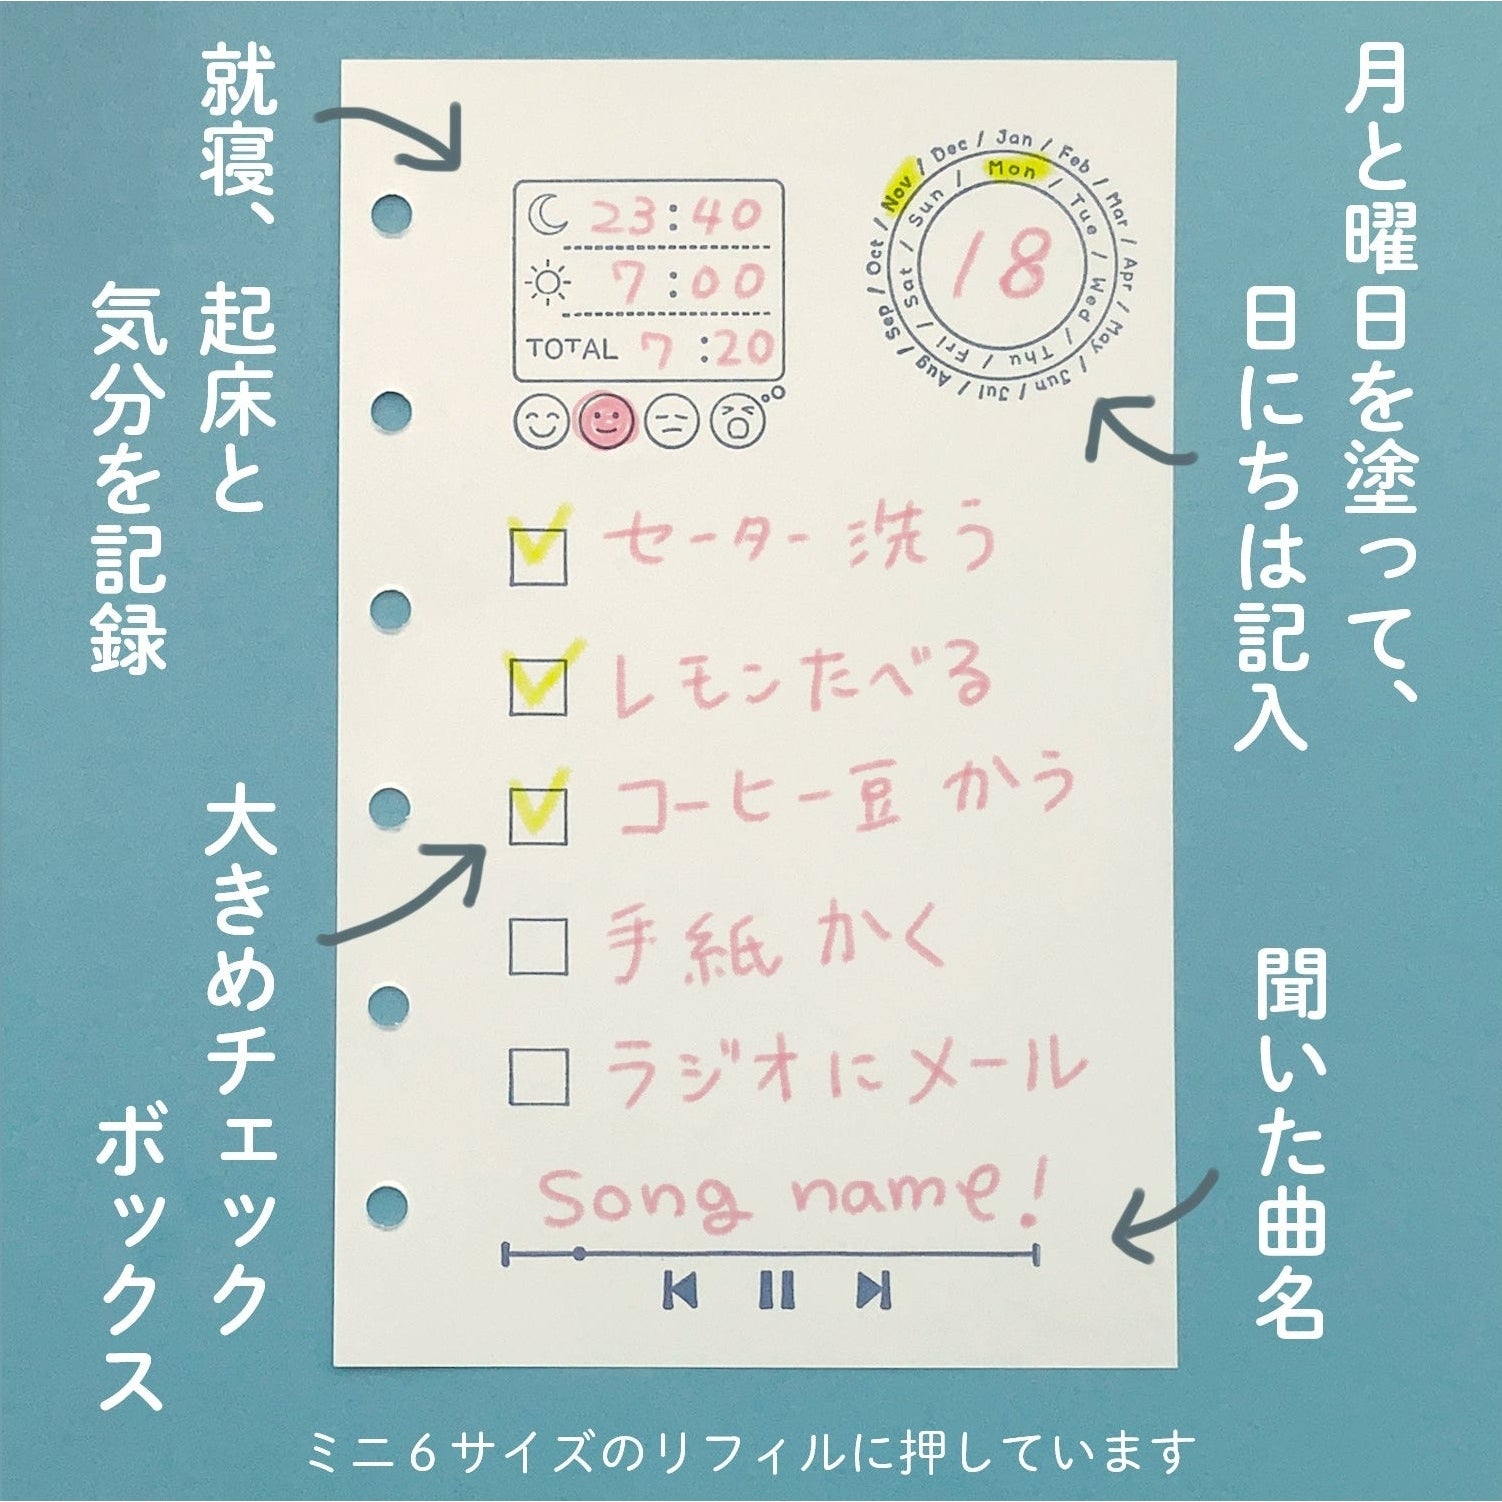 就寝、
起床と
気分を記録
月と曜日を塗って、
日にちは記入
23:40
7:00
TOTAL 7:20
Jan / Feb / Mar / Apr / May / Jun / Jul / Aug / Sep / Oct / Nov / Dec /
Mon / Tue / Wed / Thu / Fri / Sat / Sun /
18
セーター 洗う
レモンたべる
コーヒー豆 かう
手紙 かく
ラジオにメール
大きめチェック
ボックス
聞いた曲名
Song name!
ミニ6サイズのリフィルに押しています